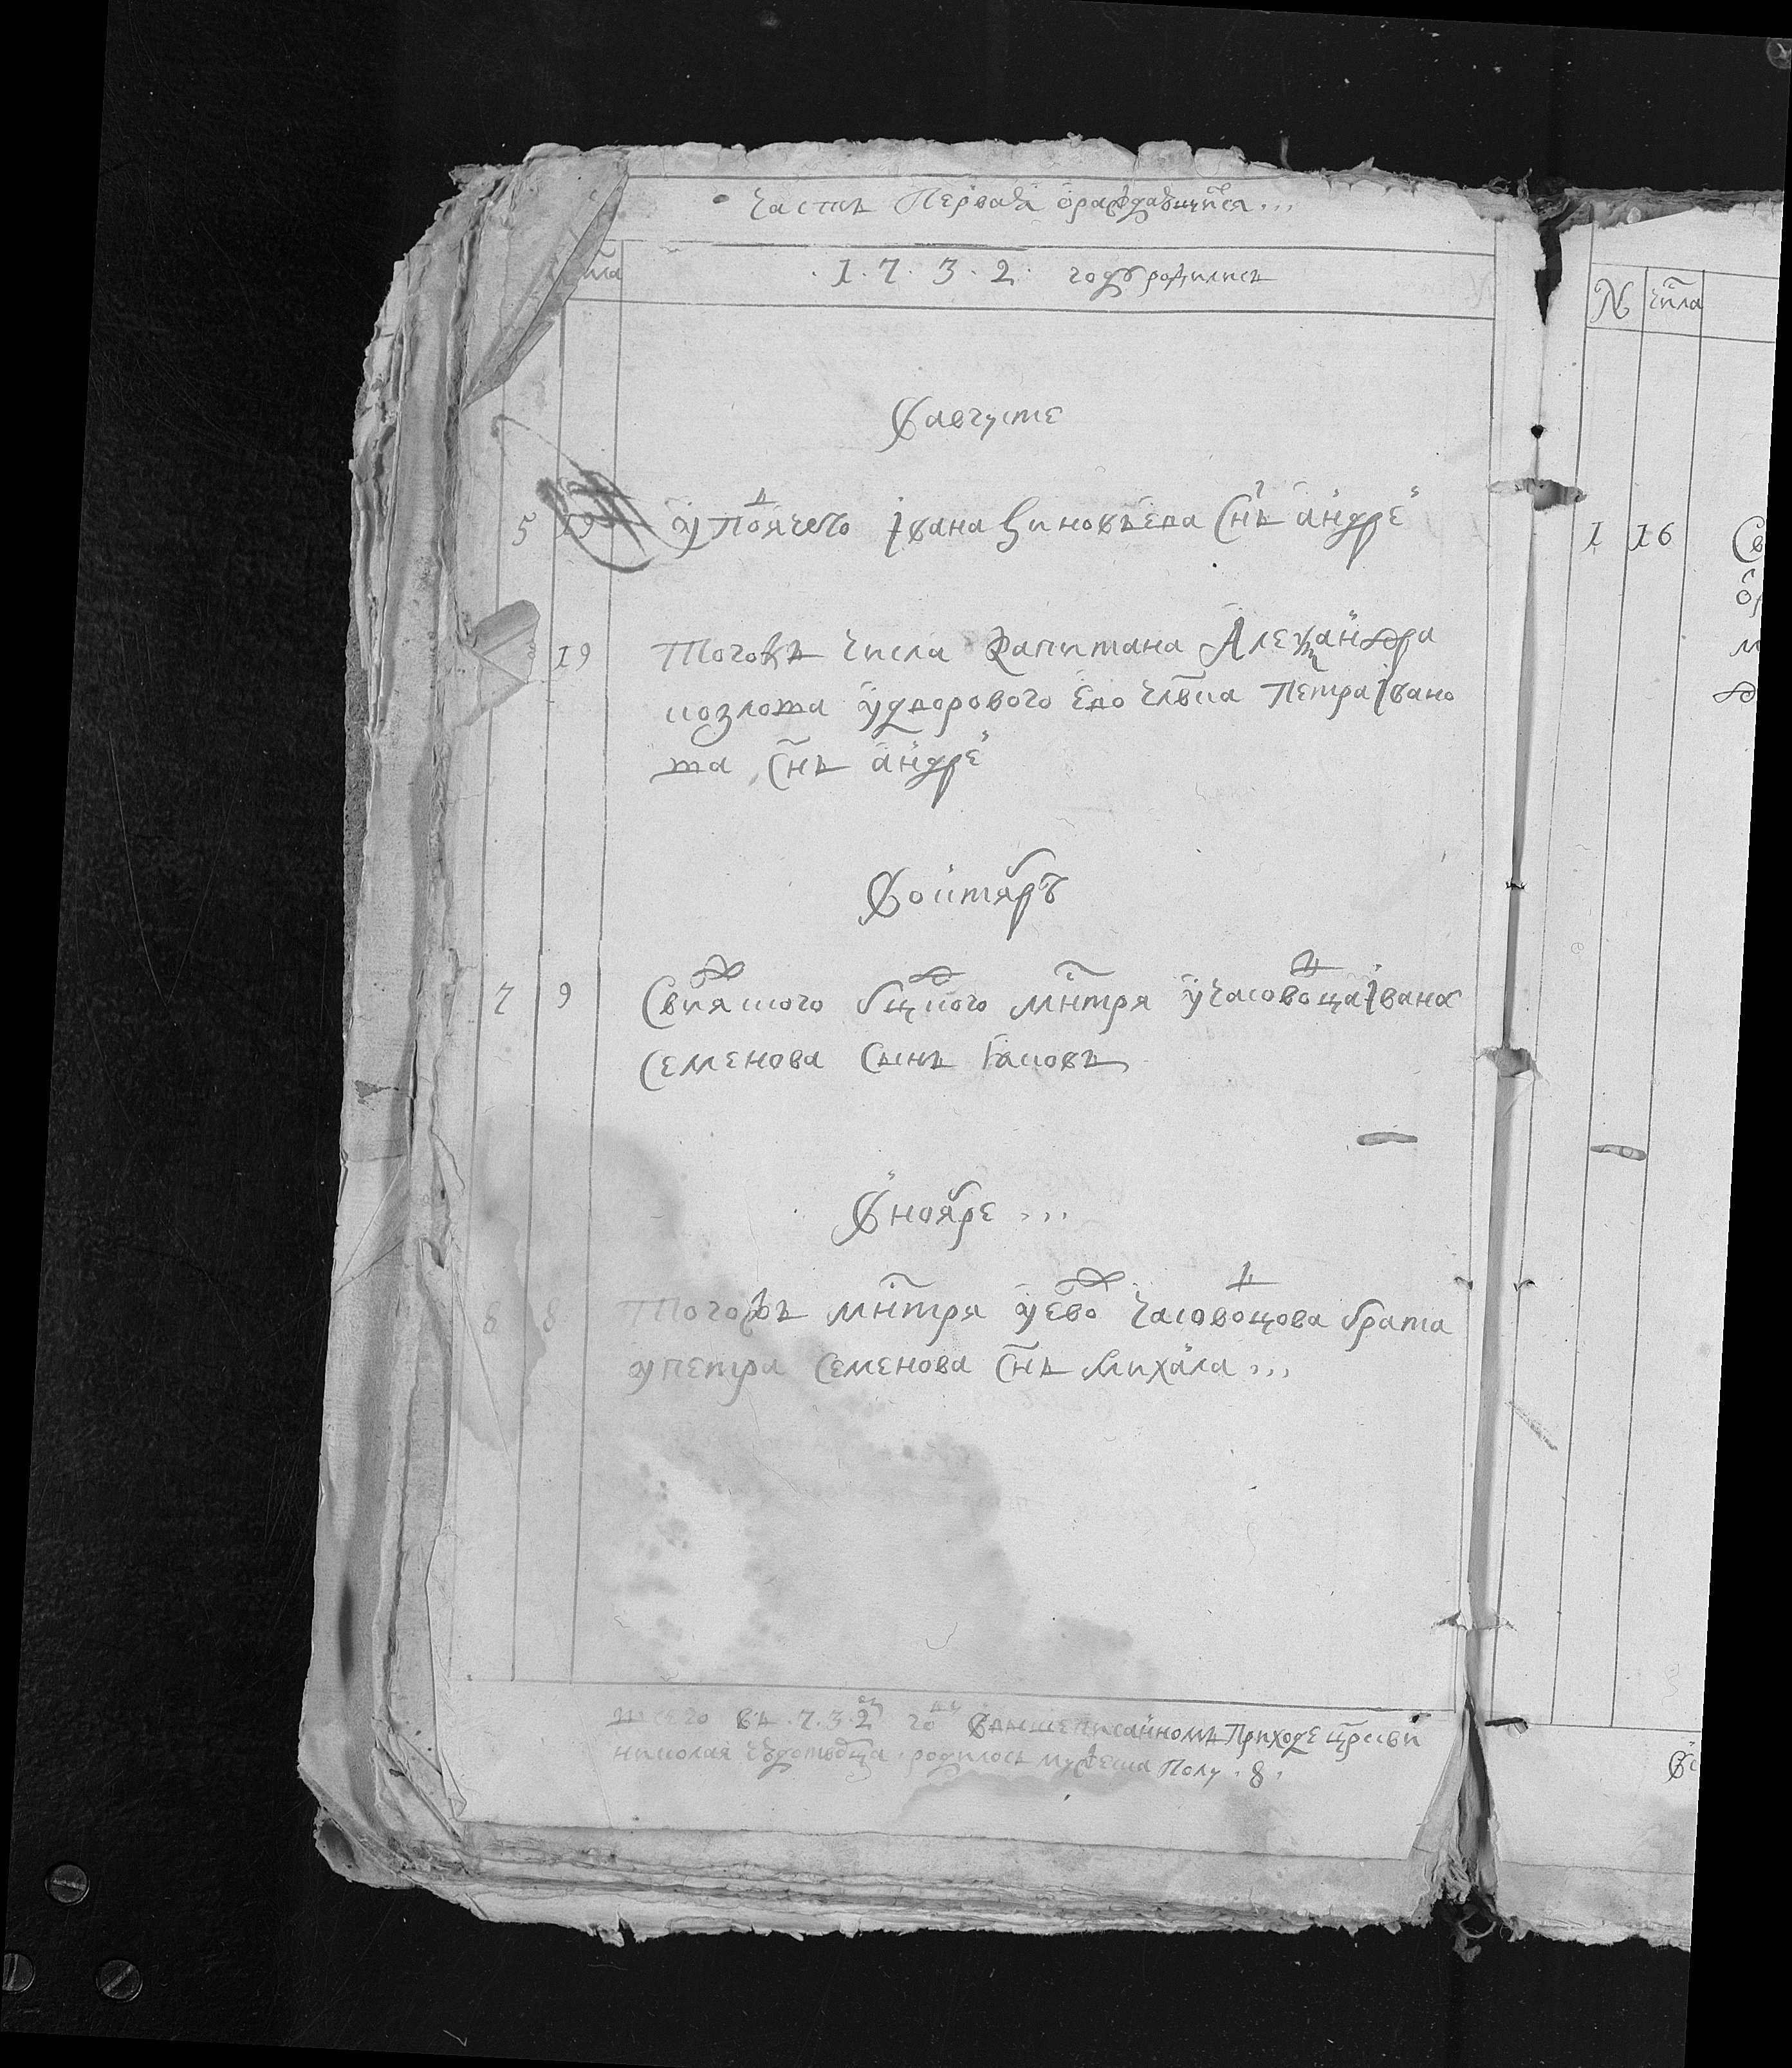 часть Первая о раждающихся...
числа
1 7 3 2 году родились
В августе
5 19 у подячего Iвана Зиновьева Снъ андреи
19 Тогожъ числа капитана Алексанъдра
козлова у дворового ево члвка Петра Iвано
ва Снъ андреи
В октябрѣ
7 9 Свияского бцкого мнтря у часовоща Iвана
Семенова Сынъ Iаковъ
В ноябре...
8 8 Тогожъ мнтря у ево часовощова брата
у петра Семенова Снъ Михаила...
Всего въ .7.3.2 го году Ввышеписанномъ Приходе цркви
николая чюдотворца родилось мужеска Полу .8.
N числа
1 16